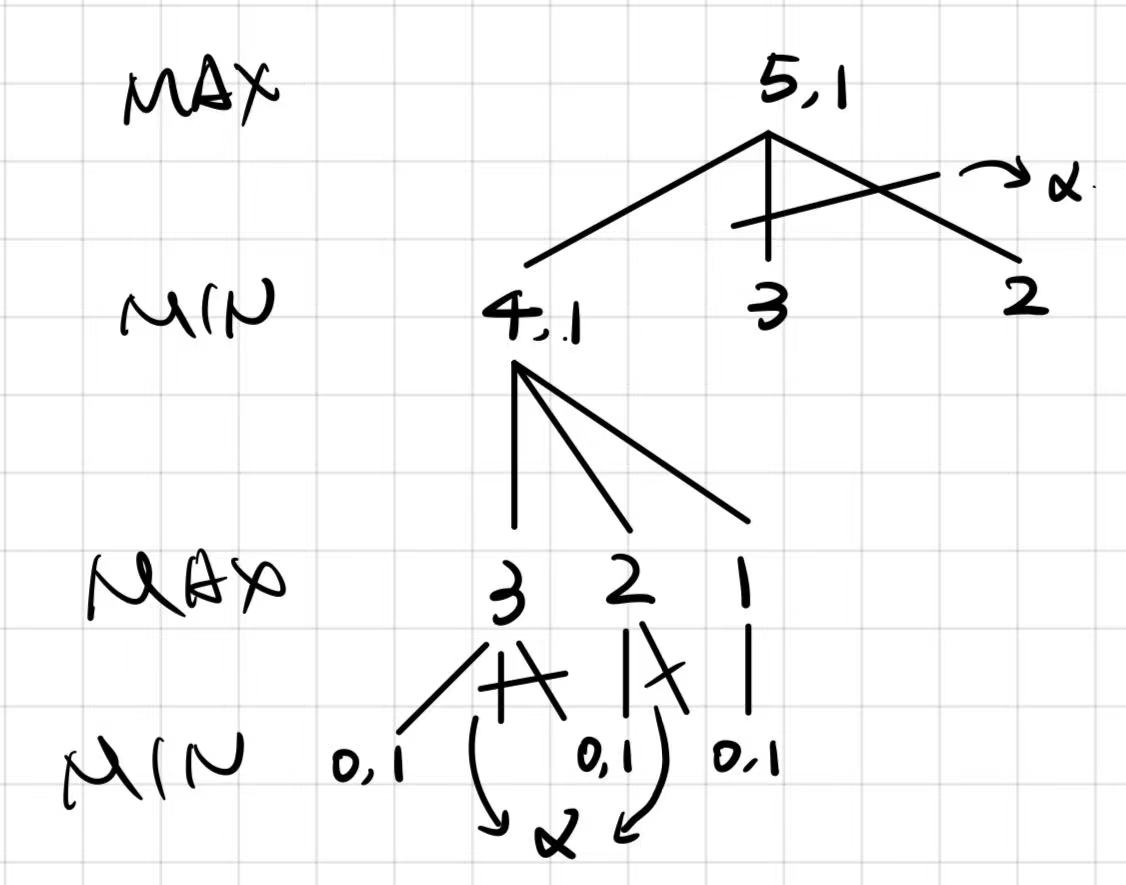 MAX 5,1
α.
MIN 4,1 3 2
MAX 3 2 1
MIN 0,1 0,1 0,1
α